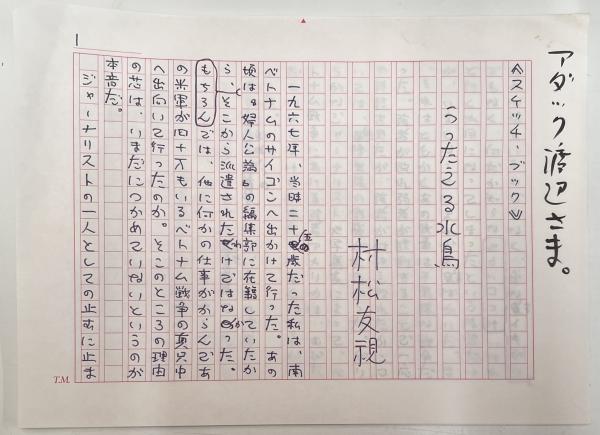 アダック渡辺さま。
≪スケッチ・ブック≫
うったえる水鳥
村松友視
一九六七年、当時二十歳だった私は、南
ベトナムのサイゴンへ出かけて行った。あの
頃は『婦人公論』の編集部に在籍していたか
ら、そこから派遣されたわけではなかった。
もちろんでは、他に何かの仕事がからんであ
の米軍が四十万もいるベトナム戦争の真只中
へ出向いて行ったのか。そこのところの理由
の芯は、いまだにつかめていないというのが
本音だ。
ジャーナリストの一人としての止むに止ま
1
T.M.